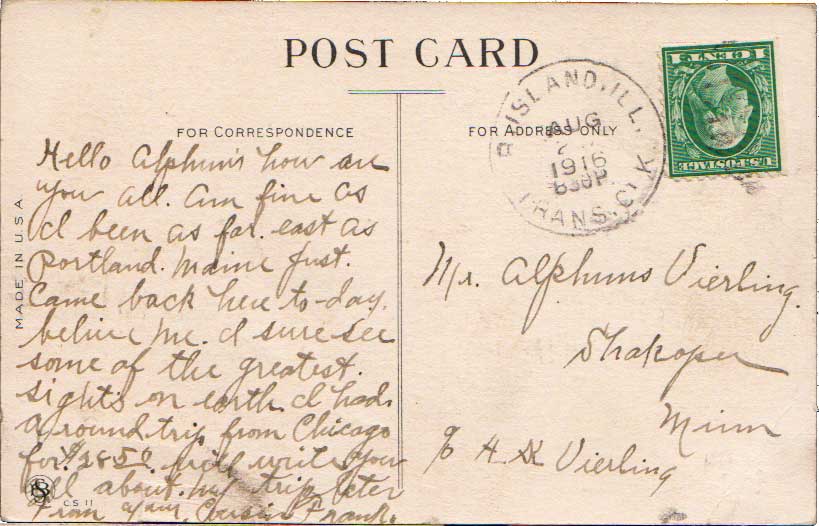 POST CARD
FOR CORRESPONDENCE
FOR ADDRESS ONLY
MADE IN U.S.A.
Hello Alphuns how are
you all. Am fine as
I been as far. east as
Portland. Maine Just.
Came back here to-day.
belive me. I sure see
some of the greatest.
sights on earth I had.
a round trip from Chicago
for. $28.50. will write you
all about. my trip later
From your Cousin Frank.
C.S 11
R. ISLAND, ILL.
AUG
1916
TRANS. CLK
1 CENT 1
U.S. POSTAGE
Mr. Alphuns Vierling.
Shakopee
Minn
c/o H Vierling